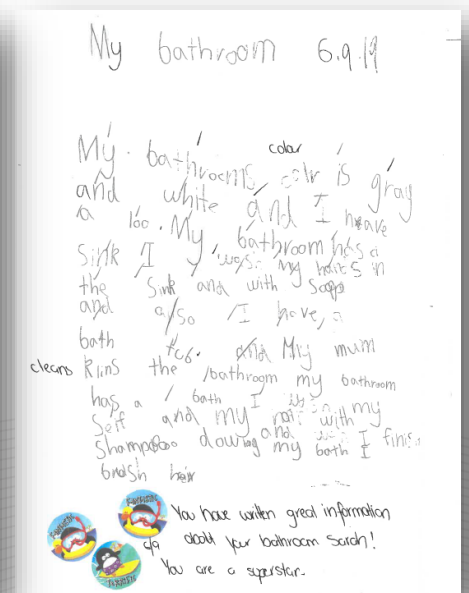 My bathroom 6.9.19
color
My bathrooms colr is gray
and white and I have
a loo. My bathroom has a
Sink I wash my hands in
the sink and with soap
and also I have a
bath tub. and My mum
cleans
the bathroom my bathroom
has a bath I my
self and my with
Shampoo and I finish
my bath I
brush hair
You have written great information
c/a about your bathroom Sarah!
You are a superstar.